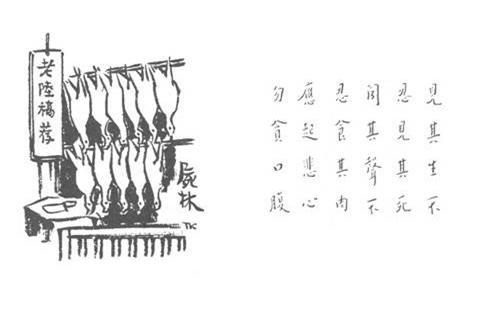 見其生不
忍見其死
聞其聲不
忍食其肉
應起悲心
勿貪口腹
屍林
TK
老陸稿荐